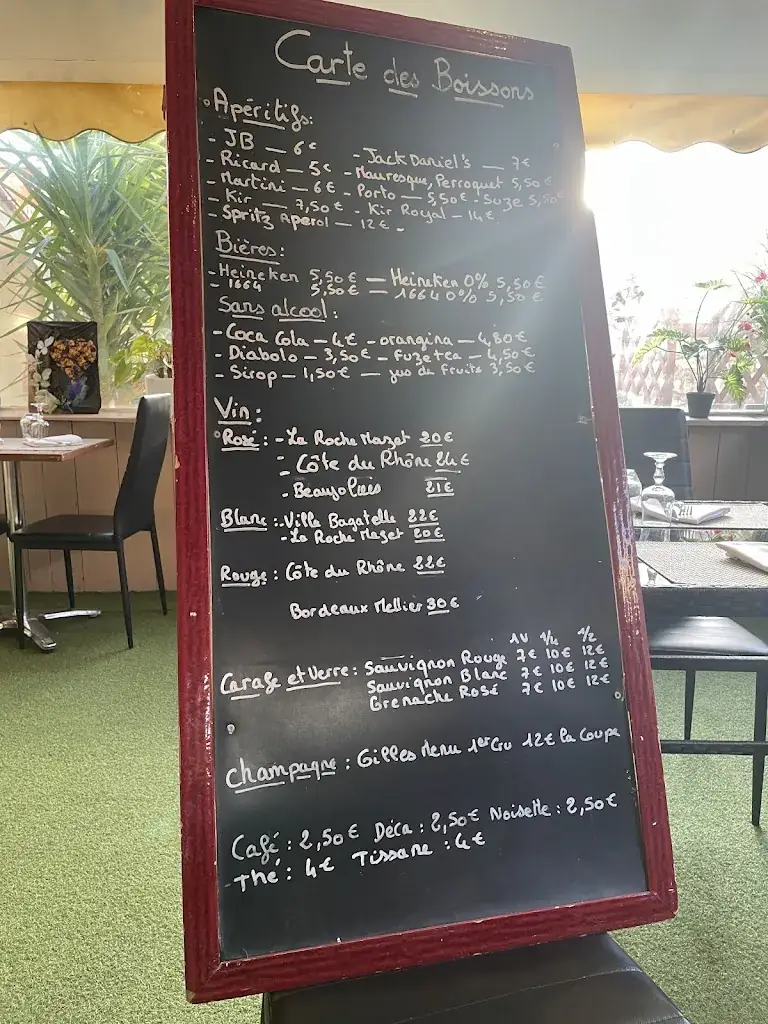 Carte des Boissons
Apéritifs:
- JB — 6€
- Ricard — 5€ - Jack Daniel's — 7€
- Martini — 6€ - Mauresque, Perroquet 5,50€
- Kir — 7,50€ - Porto — 5,50€ - Suze 5,50€
- Spritz Aperol — 12€ - - Kir Royal — 14€
Bières:
- Heineken 5,50€ — Heineken 0% 5,50€
- 1664 5,50€ — 1664 0% 5,50€
Sans alcool:
- Coca Cola — 4€ - orangina — 4,80€
- Diabolo — 3,50€ - Fuzetea — 4,50€
- Sirop — 1,50€ — jus de fruits 3,50€
Vin:
Rosé: - La Roche Mazet 20€
- Côte du Rhône 24€
- Beaujolais 21€
Blanc: - Villa Bagatelle 22€
- La Roche Mazet 20€
Rouge: Côte du Rhône 22€
Bordeaux Mellier 30€
1V 1/4 1/2
Carafe et Verre: Sauvignon Rouge 7€ 10€ 12€
Sauvignon Blanc 7€ 10€ 12€
Grenache Rosé 7€ 10€ 12€
champagne: Gilles Menu 1er Cru 12€ la Coupe
Café: 2,50€ Déca: 2,50€ Noisette: 2,50€
Thé: 4€ Tissane: 4€